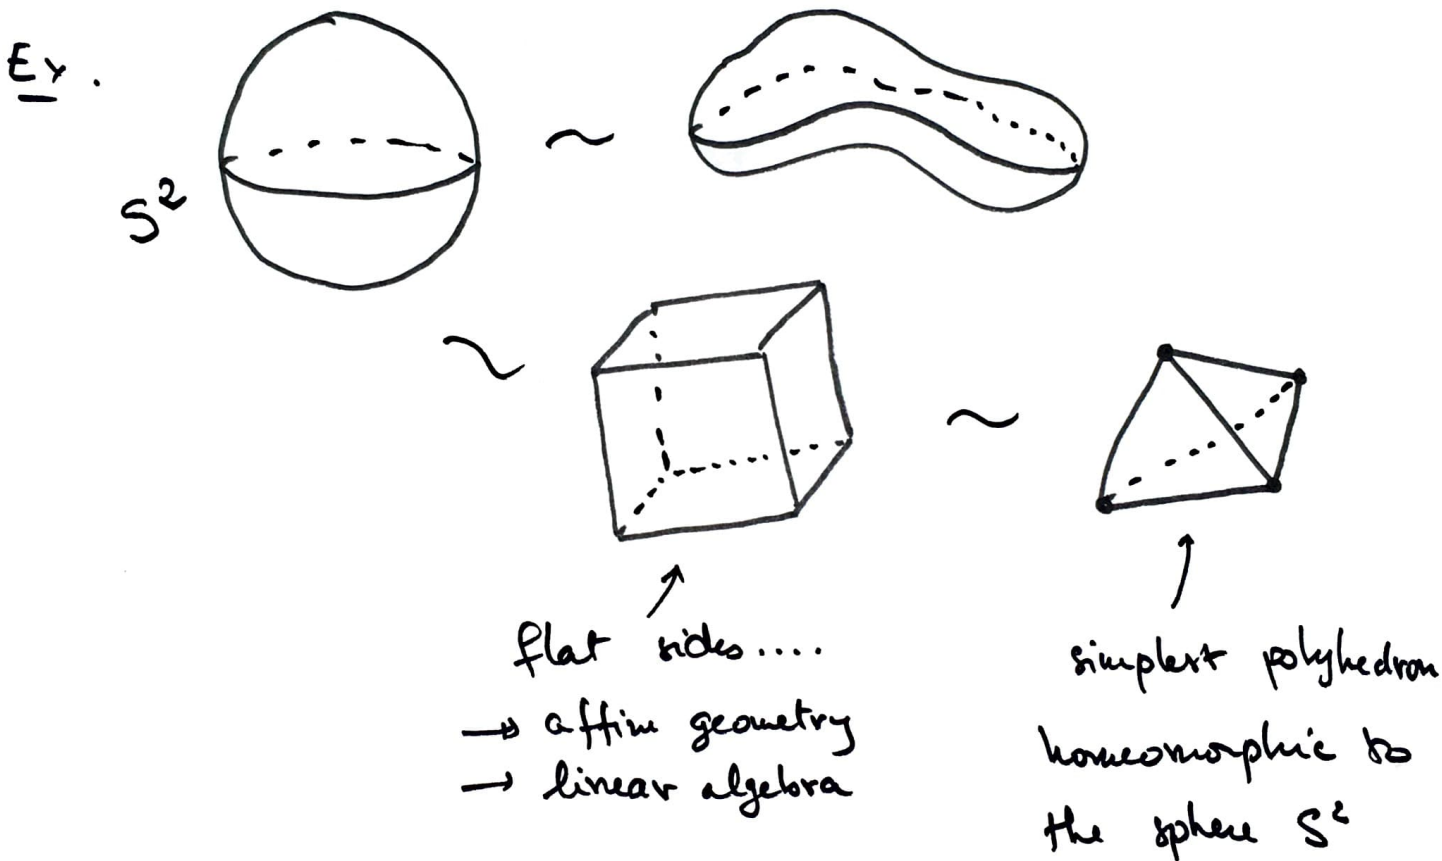 Ex.
S²
~
~
~
flat sides....
→ affine geometry
→ linear algebra
simplest polyhedron
homeomorphic to
the sphere S²